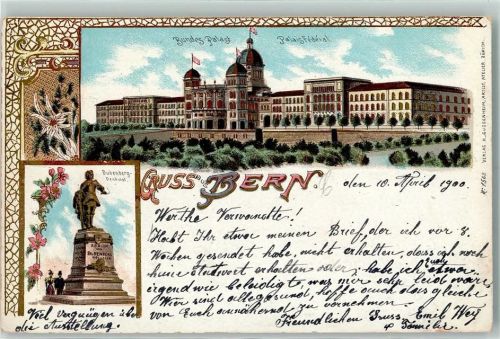 Bundes-Palast Palais Fédéral
Bubenberg-
Denkmal
GRUSS aus BERN.
VERLAG H. GUGGENHEIM, KUNST-ATELIER, ZÜRICH.
den 10. April 1900.
Werthe Verwandte!
Habt Ihr etwa meinen Brief, der ich vor 3.
Wochen gesendet habe, nicht erhalten, dass ich noch
keine Antwort erhalten oder habe ich Euch etwa
irgend wie beleidigt, was mir sehr leid wäre.
Wir sind alle gesund, hoffe auch das gleiche
von Euch annähernd zu vernehmen.
Freundlichen Gruss Emil Wey
& Familie.
Viel Vergnügen über
die Ausstellung.